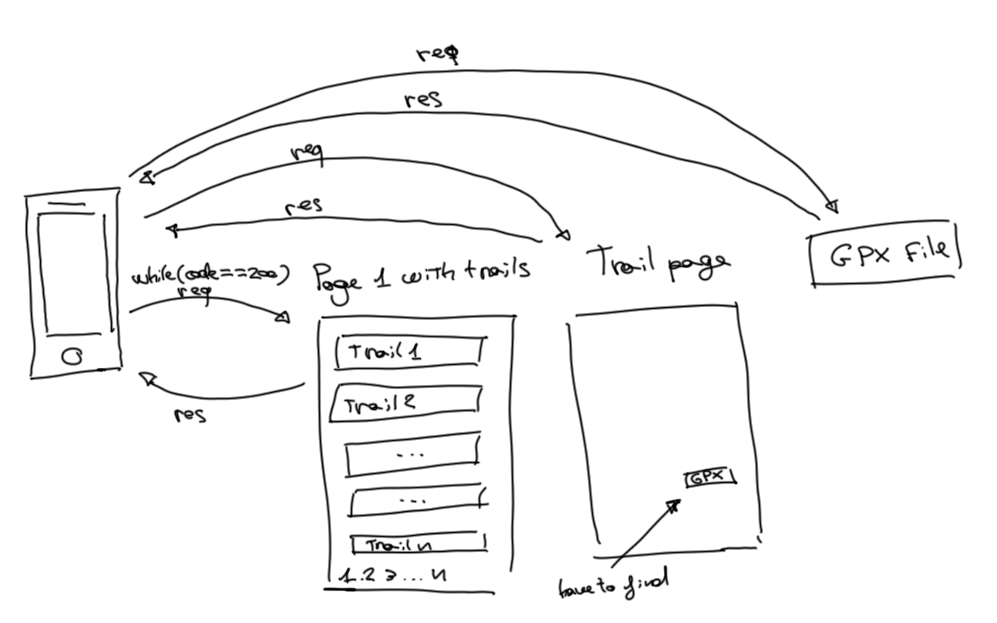 req
res
req
res
while(code==200)
req
res
Page 1 with trails
Trail 1
Trail 2
...
...
Trail n
1 2 3 ... n
Trail page
GPX
have to find
GPX File